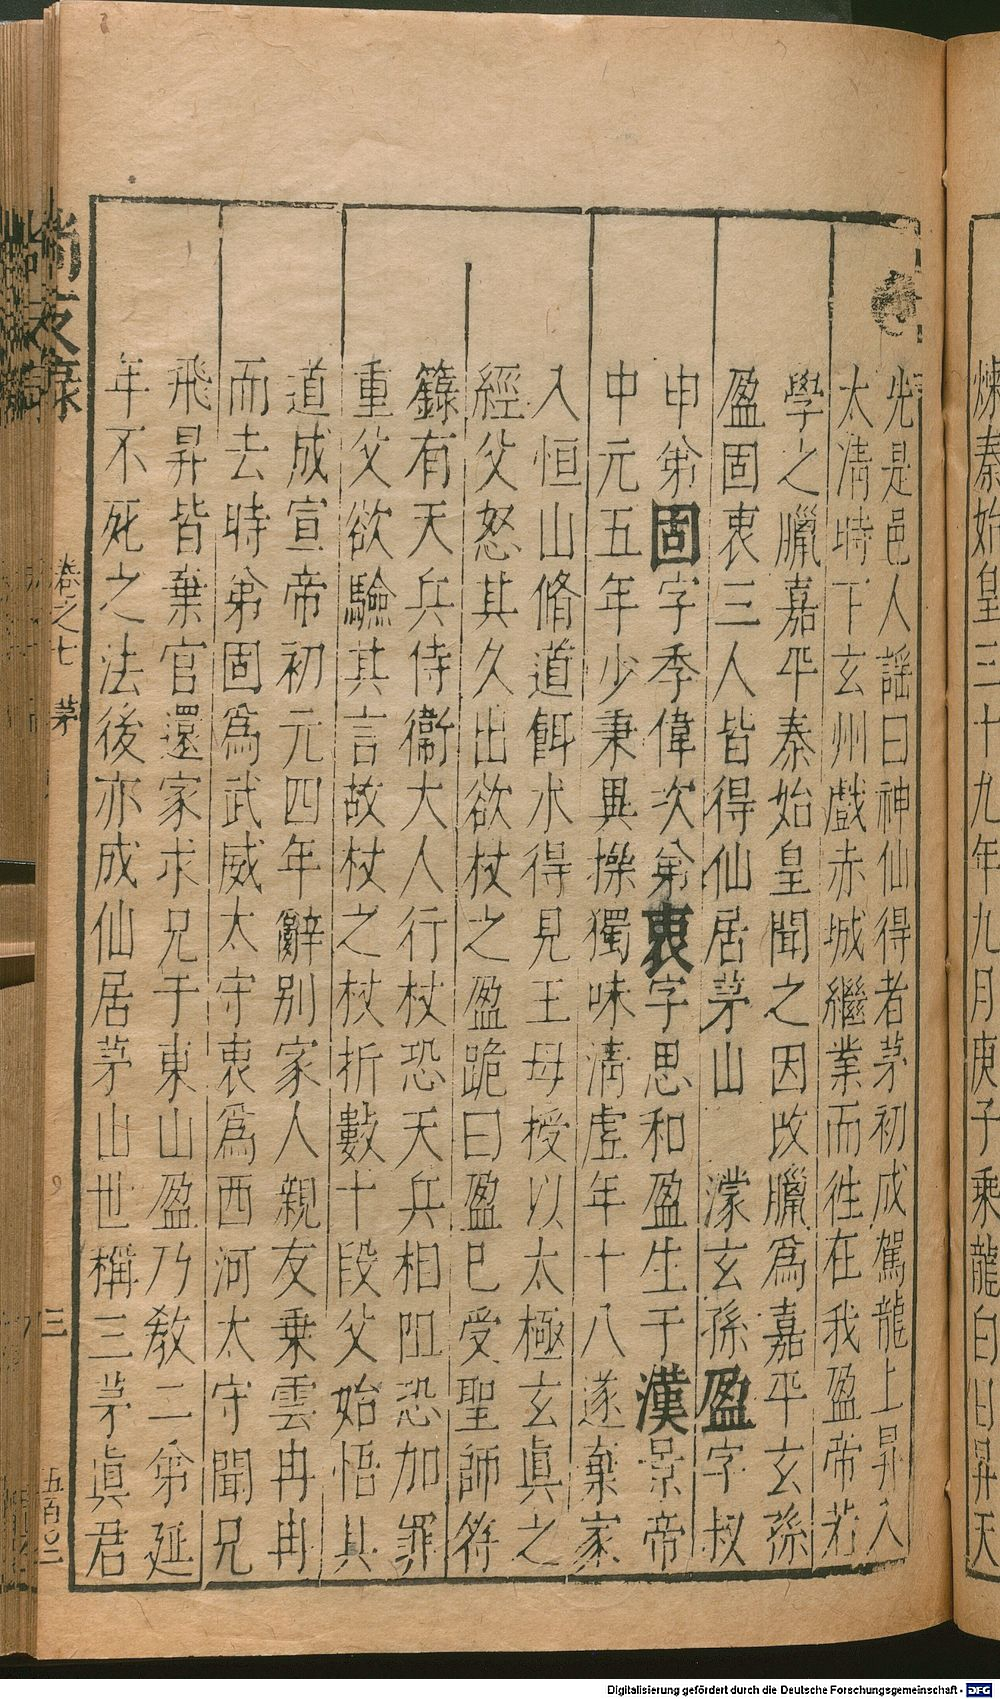 煉秦始皇三十九年九月庚子乘龍白日昇天
先是邑人謡曰神仙得者茅初成駕龍上昇入
太清時下玄州戲赤城繼業而徃在我盈帝若
學之臘嘉平秦始皇聞之因改臘爲嘉平玄孫
盈固衷三人皆得仙居茅山 濛玄孫盈字叔
申弟固字季偉次弟衷字思和盈生于漢景帝
中元五年少秉異操獨味清虛年十八遂棄家
入恒山脩道餌水得見王母授以太極玄眞之
經父怒其久出欲杖之盈跪曰盈已受聖師符
籙有天兵侍衞大人行杖恐天兵相阻恐加罪
重父欲驗其言故杖之杖折數十段父始悟其
道成宣帝初元四年辭别家人親友乗雲冉冉
而去時弟固爲武威太守衷爲西河太守聞兄
飛昇皆棄官還家求兄于東山盈乃敎二弟延
年不死之法後亦成仙居茅山世稱三茅眞君
尚友錄 卷之七 茅 三 五百〇二
Digitalisierung gefördert durch die Deutsche Forschungsgemeinschaft - DFG